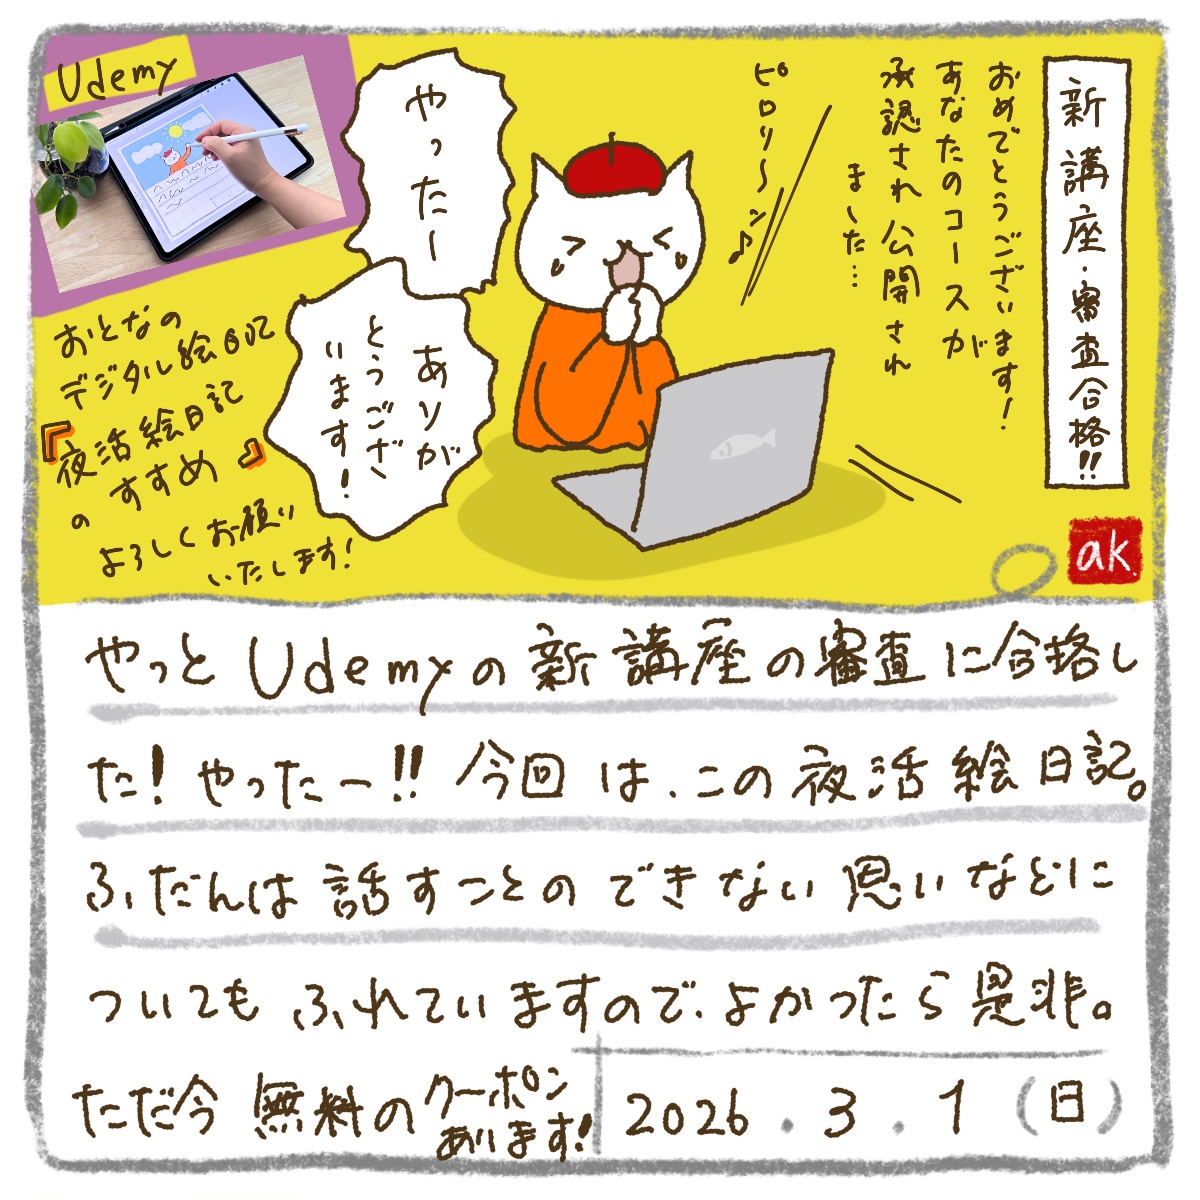 新講座・審査合格!!
おめでとうございます!
あなたのコースが
承認され公開され
ました…
ピロリ〜ン♪
やったー
ありが
とうござ
います!
Udemy
おとなの
デジタル絵日記
『夜活絵日記
のすすめ』
よろしくお願い
いたします!
ak.
やっとUdemyの新講座の審査に合格し
た!やったー!!今回は、この夜活絵日記。
ふだんは話すことのできない思いなどに
ついてもふれていますので、よかったら是非。
ただ今無料のクーポン
あります!
2026.3.1(日)